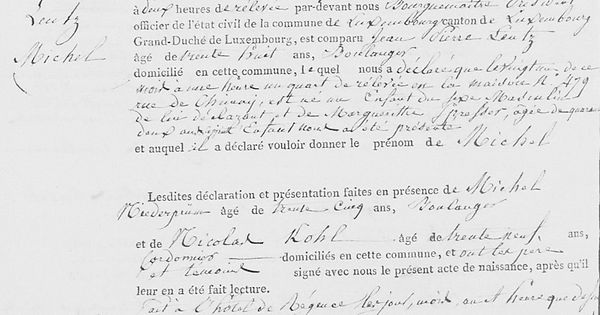 Lentz
Michel
à deux heures de relevée par-devant nous Bourgmestre
officier de l'état civil de la commune de Luxembourg canton de Luxembourg
Grand-Duché de Luxembourg, est comparu Jean Pierre Lentz
âgé de trente huit ans, Boulanger
domicilié en cette commune, lequel nous a déclaré que le vingt de ce
mois à une heure un quart de relevée en la maison N° 479
rue de Chimay, est né un Enfant du sexe Masculin
de lui déclarant et de Marguerite âgée de quarante
deux ans Enfant nous a été présenté
et auquel il a déclaré vouloir donner le prénom de Michel
Lesdites déclaration et présentation faites en présence de Michel
Niederprum âgé de trente cinq ans, Boulanger
et de Nicolas Kohl âgé de trente neuf ans,
Cordonnier domiciliés en cette commune, et ont les père
et témoins signé avec nous le présent acte de naissance, après qu'il
leur en a été fait lecture.
Fait à l'hôtel de Régence les jour, mois, an et heure que dessus